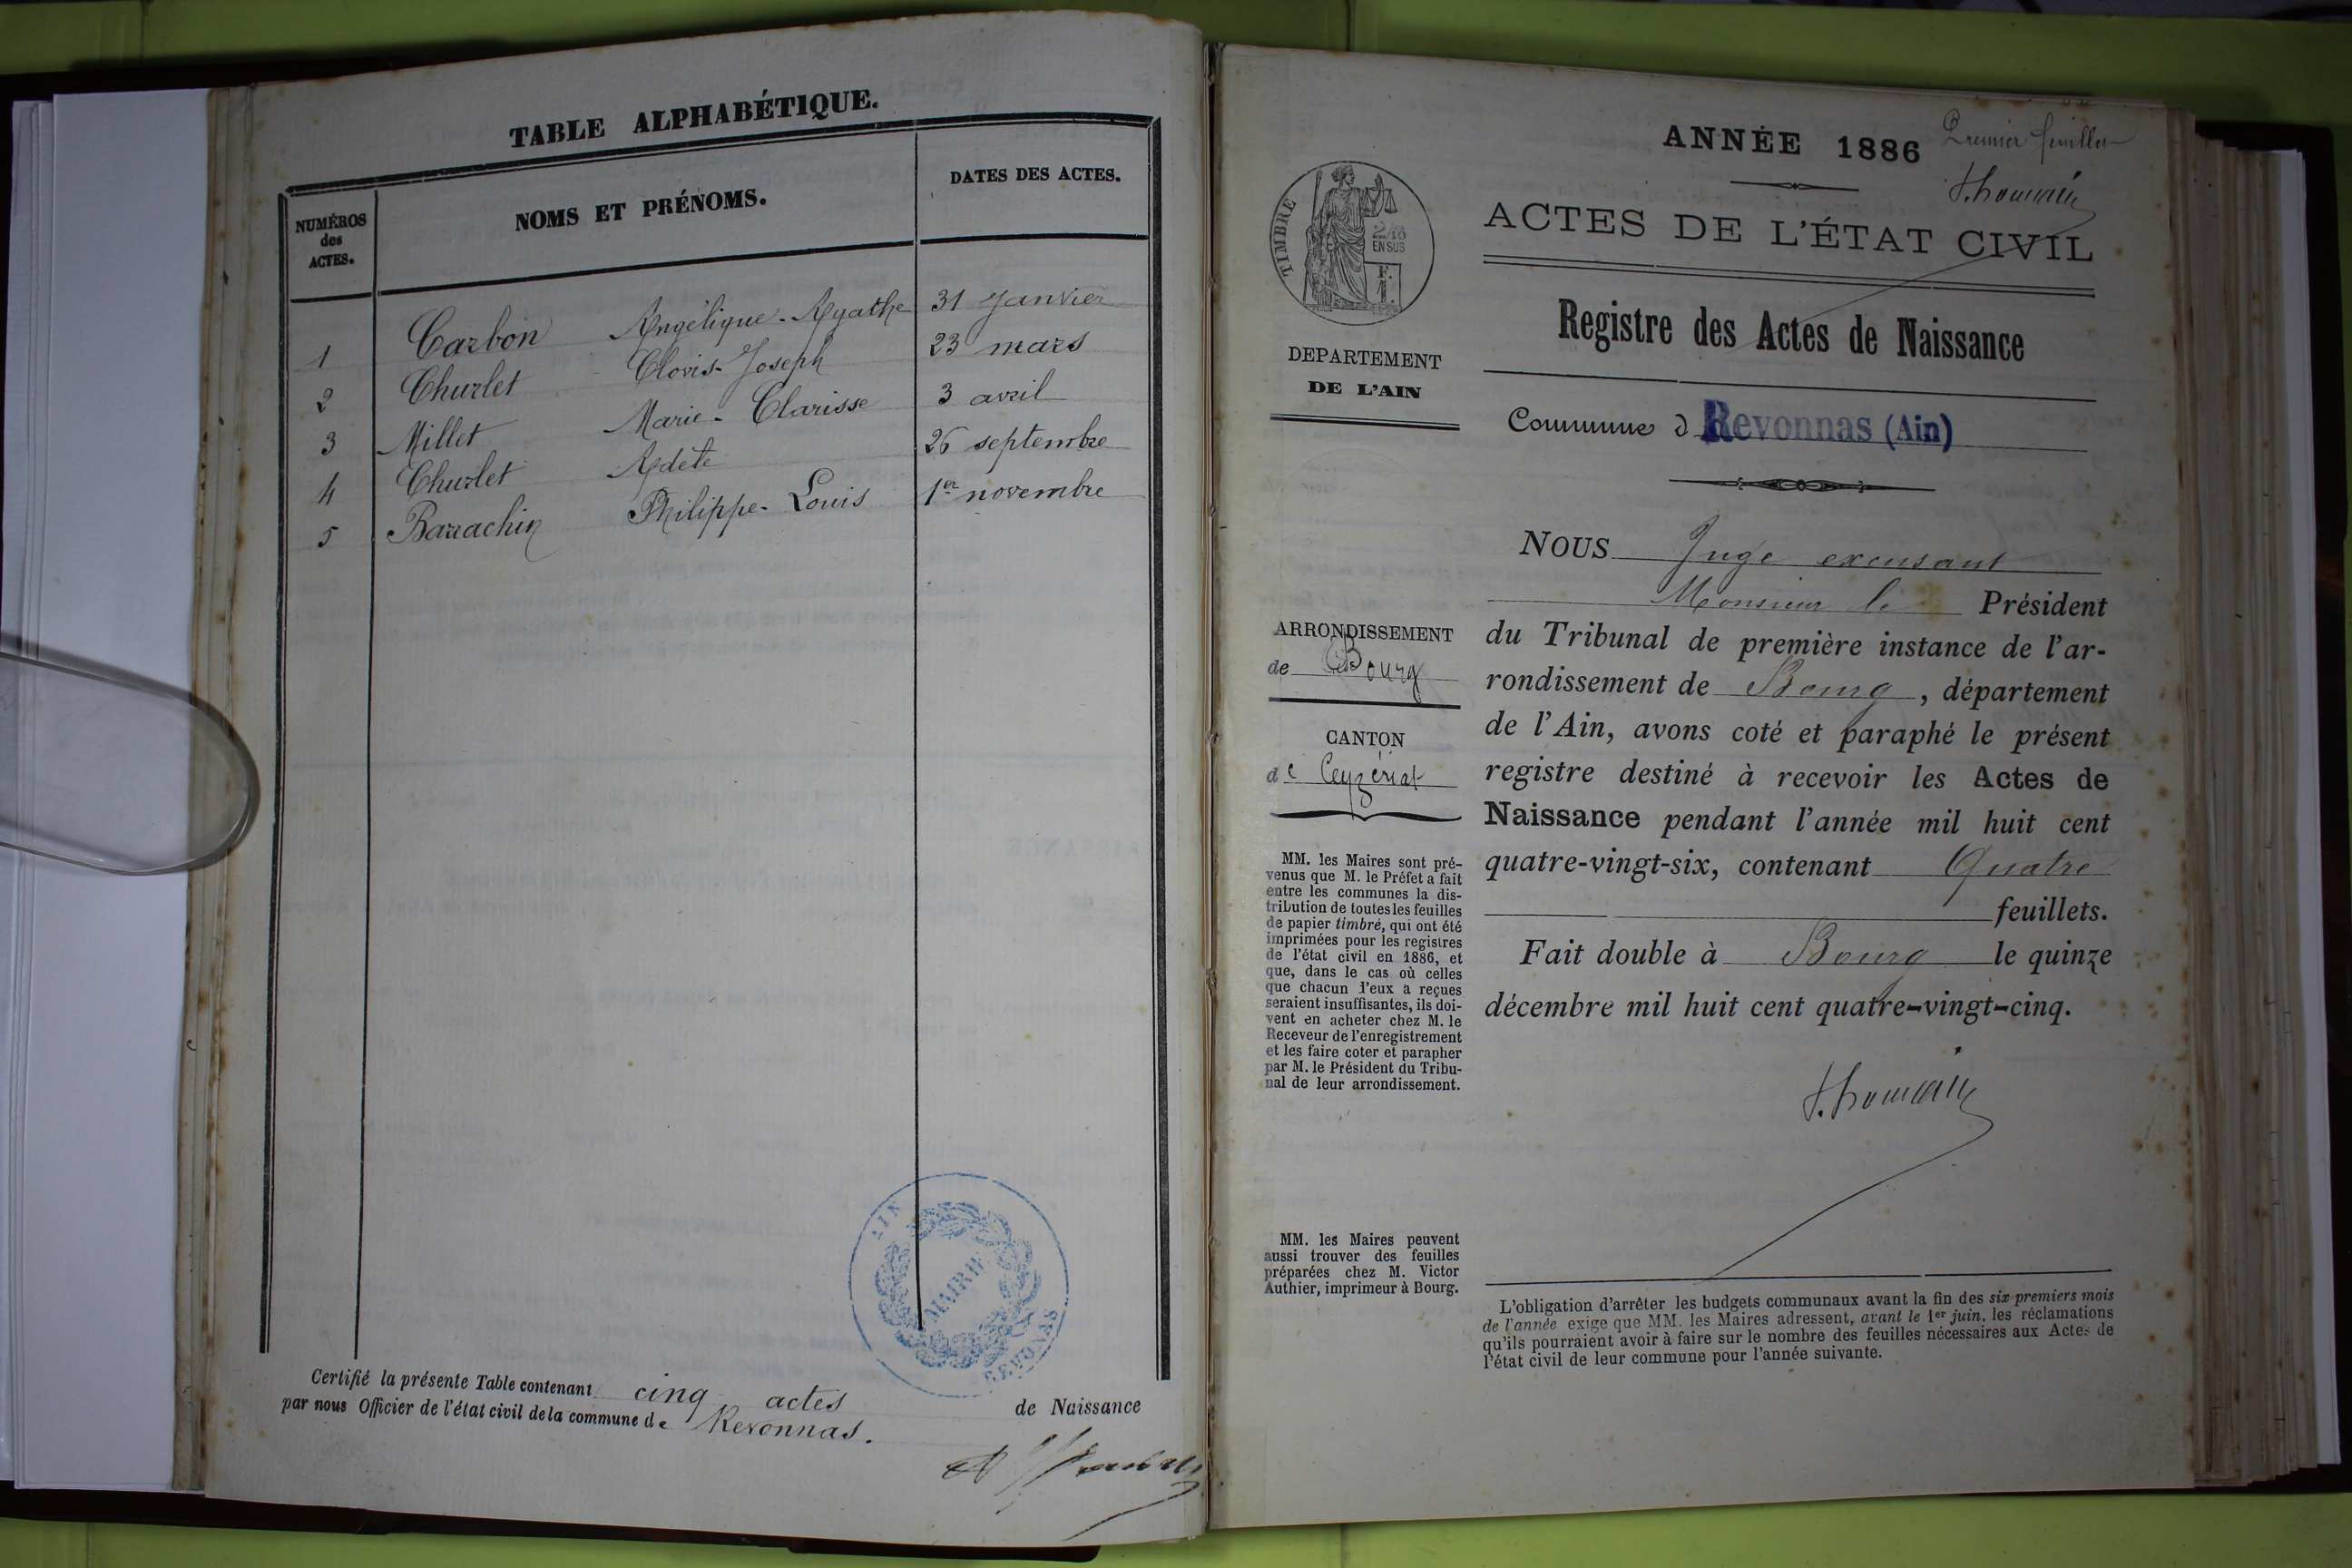 TABLE ALPHABÉTIQUE.
NUMÉROS
des
ACTES.
NOMS ET PRÉNOMS.
DATES DES ACTES.
1 Carbon Angélique-Agathe 31 Janvier
2 Churlet Clovis-Joseph 23 mars
3 Millet Marie-Clarisse 3 avril
4 Churlet Adèle 26 septembre
5 Barrachin Philippe-Louis 1er novembre
AIN
MAIRIE
REVONNAS
Certifié la présente Table contenant cinq actes de Naissance
par nous Officier de l'état civil de la commune de Revonnas.
ANNÉE 1886
Premier feuillet
TIMBRE
2/10
EN SUS
ACTES DE L'ÉTAT CIVIL
Registre des Actes de Naissance
DEPARTEMENT
DE L'AIN
Commune d Revonnas (Ain)
NOUS Juge excusant
Monsieur le Président
du Tribunal de première instance de l'ar-
rondissement de Bourg, département
de l'Ain, avons coté et paraphé le présent
registre destiné à recevoir les Actes de
Naissance pendant l'année mil huit cent
quatre-vingt-six, contenant Quatre
feuillets.
Fait double à Bourg le quinze
décembre mil huit cent quatre-vingt-cinq.
ARRONDISSEMENT
de Bourg
CANTON
de Ceyzériat
MM. les Maires sont pré-
venus que M. le Préfet a fait
entre les communes la dis-
tribution de toutes les feuilles
de papier timbré, qui ont été
imprimées pour les registres
de l'état civil en 1886, et
que, dans le cas où celles
que chacun d'eux a reçues
seraient insuffisantes, ils doi-
vent en acheter chez M. le
Receveur de l'enregistrement
et les faire coter et parapher
par M. le Président du Tribu-
nal de leur arrondissement.
MM. les Maires peuvent
aussi trouver des feuilles
préparées chez M. Victor
Authier, imprimeur à Bourg.
L'obligation d'arrêter les budgets communaux avant la fin des six premiers mois
de l'année exige que MM. les Maires adressent, avant le 1er juin, les réclamations
qu'ils pourraient avoir à faire sur le nombre des feuilles nécessaires aux Actes de
l'état civil de leur commune pour l'année suivante.